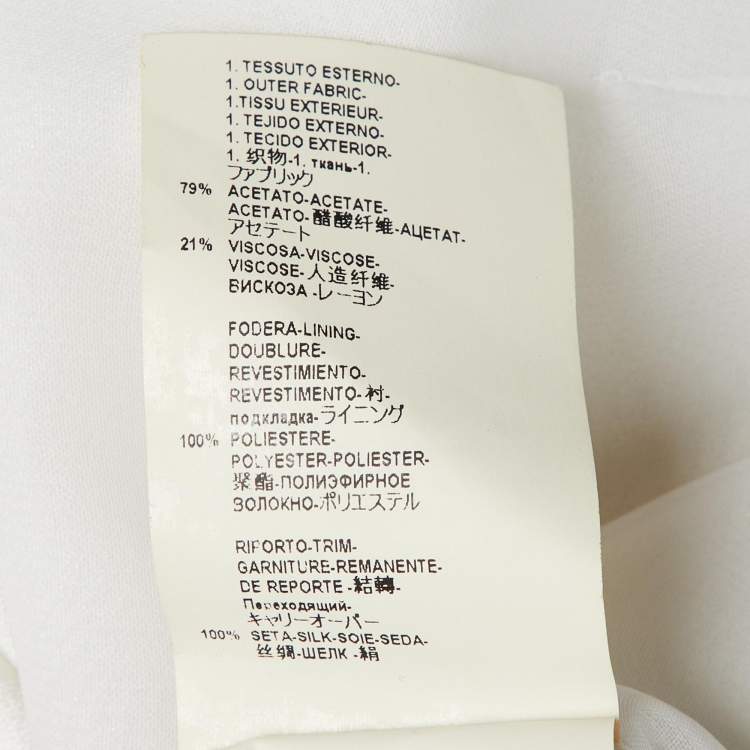 1. TESSUTO ESTERNO-
1. OUTER FABRIC-
1.TISSU EXTERIEUR-
1. TEJIDO EXTERNO-
1. TECIDO EXTERIOR-
1. 织物-1. ткань-1.
ファブリック
79% ACETATO-ACETATE-
ACETATO-醋酸纤维-АЦЕТАТ-
アセテート
21% VISCOSA-VISCOSE-
VISCOSE-人造纤维-
ВИСКОЗА -レーヨン
FODERA-LINING-
DOUBLURE-
REVESTIMIENTO-
REVESTIMENTO-衬-
подкладка-ライニング
100% POLIESTERE-
POLYESTER-POLIESTER-
聚酯-ПОЛИЭФИРНОЕ
ВОЛОКНО-ポリエステル
RIPORTO-TRIM-
GARNITURE-REMANENTE-
DE REPORTE -結轉-
Переходящий-
キャリーオーバー
100% SETA-SILK-SOIE-SEDA-
丝绸-ШЕЛК -絹